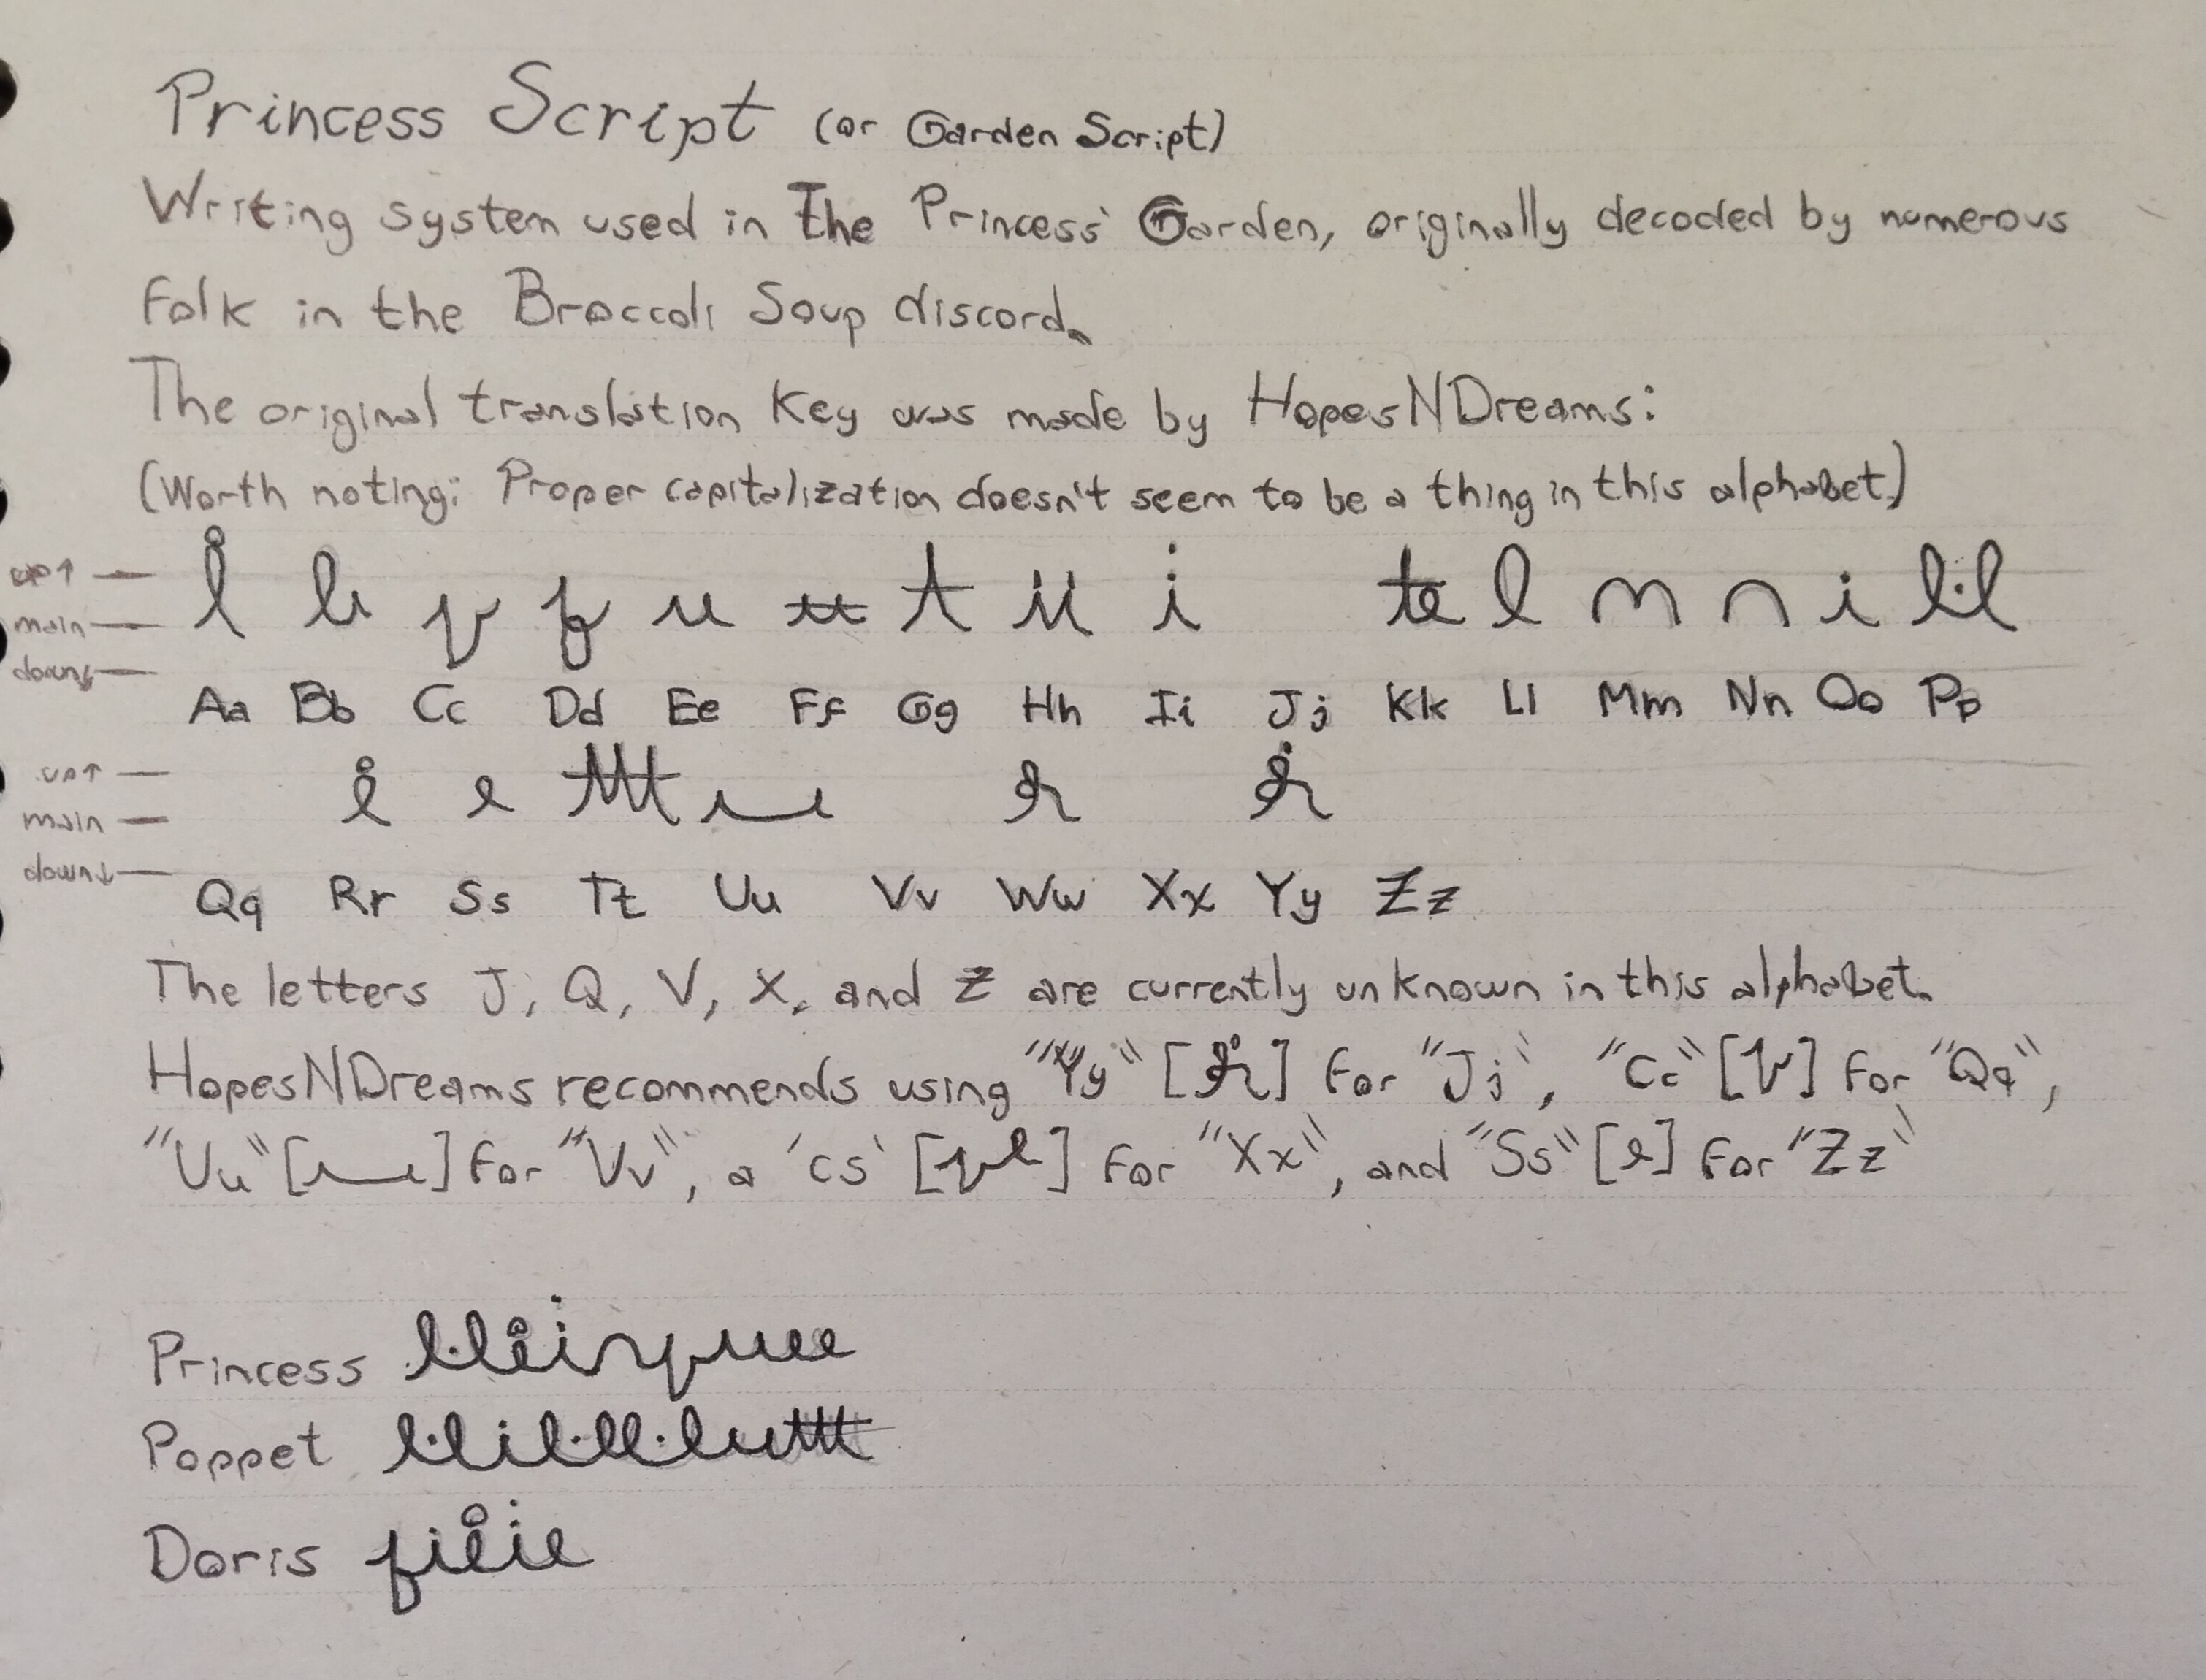 Princess Script (or Garden Script)
Writing system used in The Princess' Garden, originally decoded by numerous
folk in the Broccoli Soup discord.
The original translation key was made by HopesNDreams:
(Worth noting: Proper capitalization doesn't seem to be a thing in this alphabet.)
up↑
main
down↓
Aa Bb Cc Dd Ee Ff Gg Hh Ii Jj Kk Ll Mm Nn Oo Pp
up↑
main
down↓
Qq Rr Ss Tt Uu Vv Ww Xx Yy Zz
The letters J, Q, V, X, and Z are currently unknown in this alphabet.
HopesNDreams recommends using "Yy" [] for "Jj", "Cc" [] for "Qq",
"Uu" [] for "Vv", a 'cs' [] for "Xx", and "Ss" [] for "Zz"
Princess
Poppet
Doris